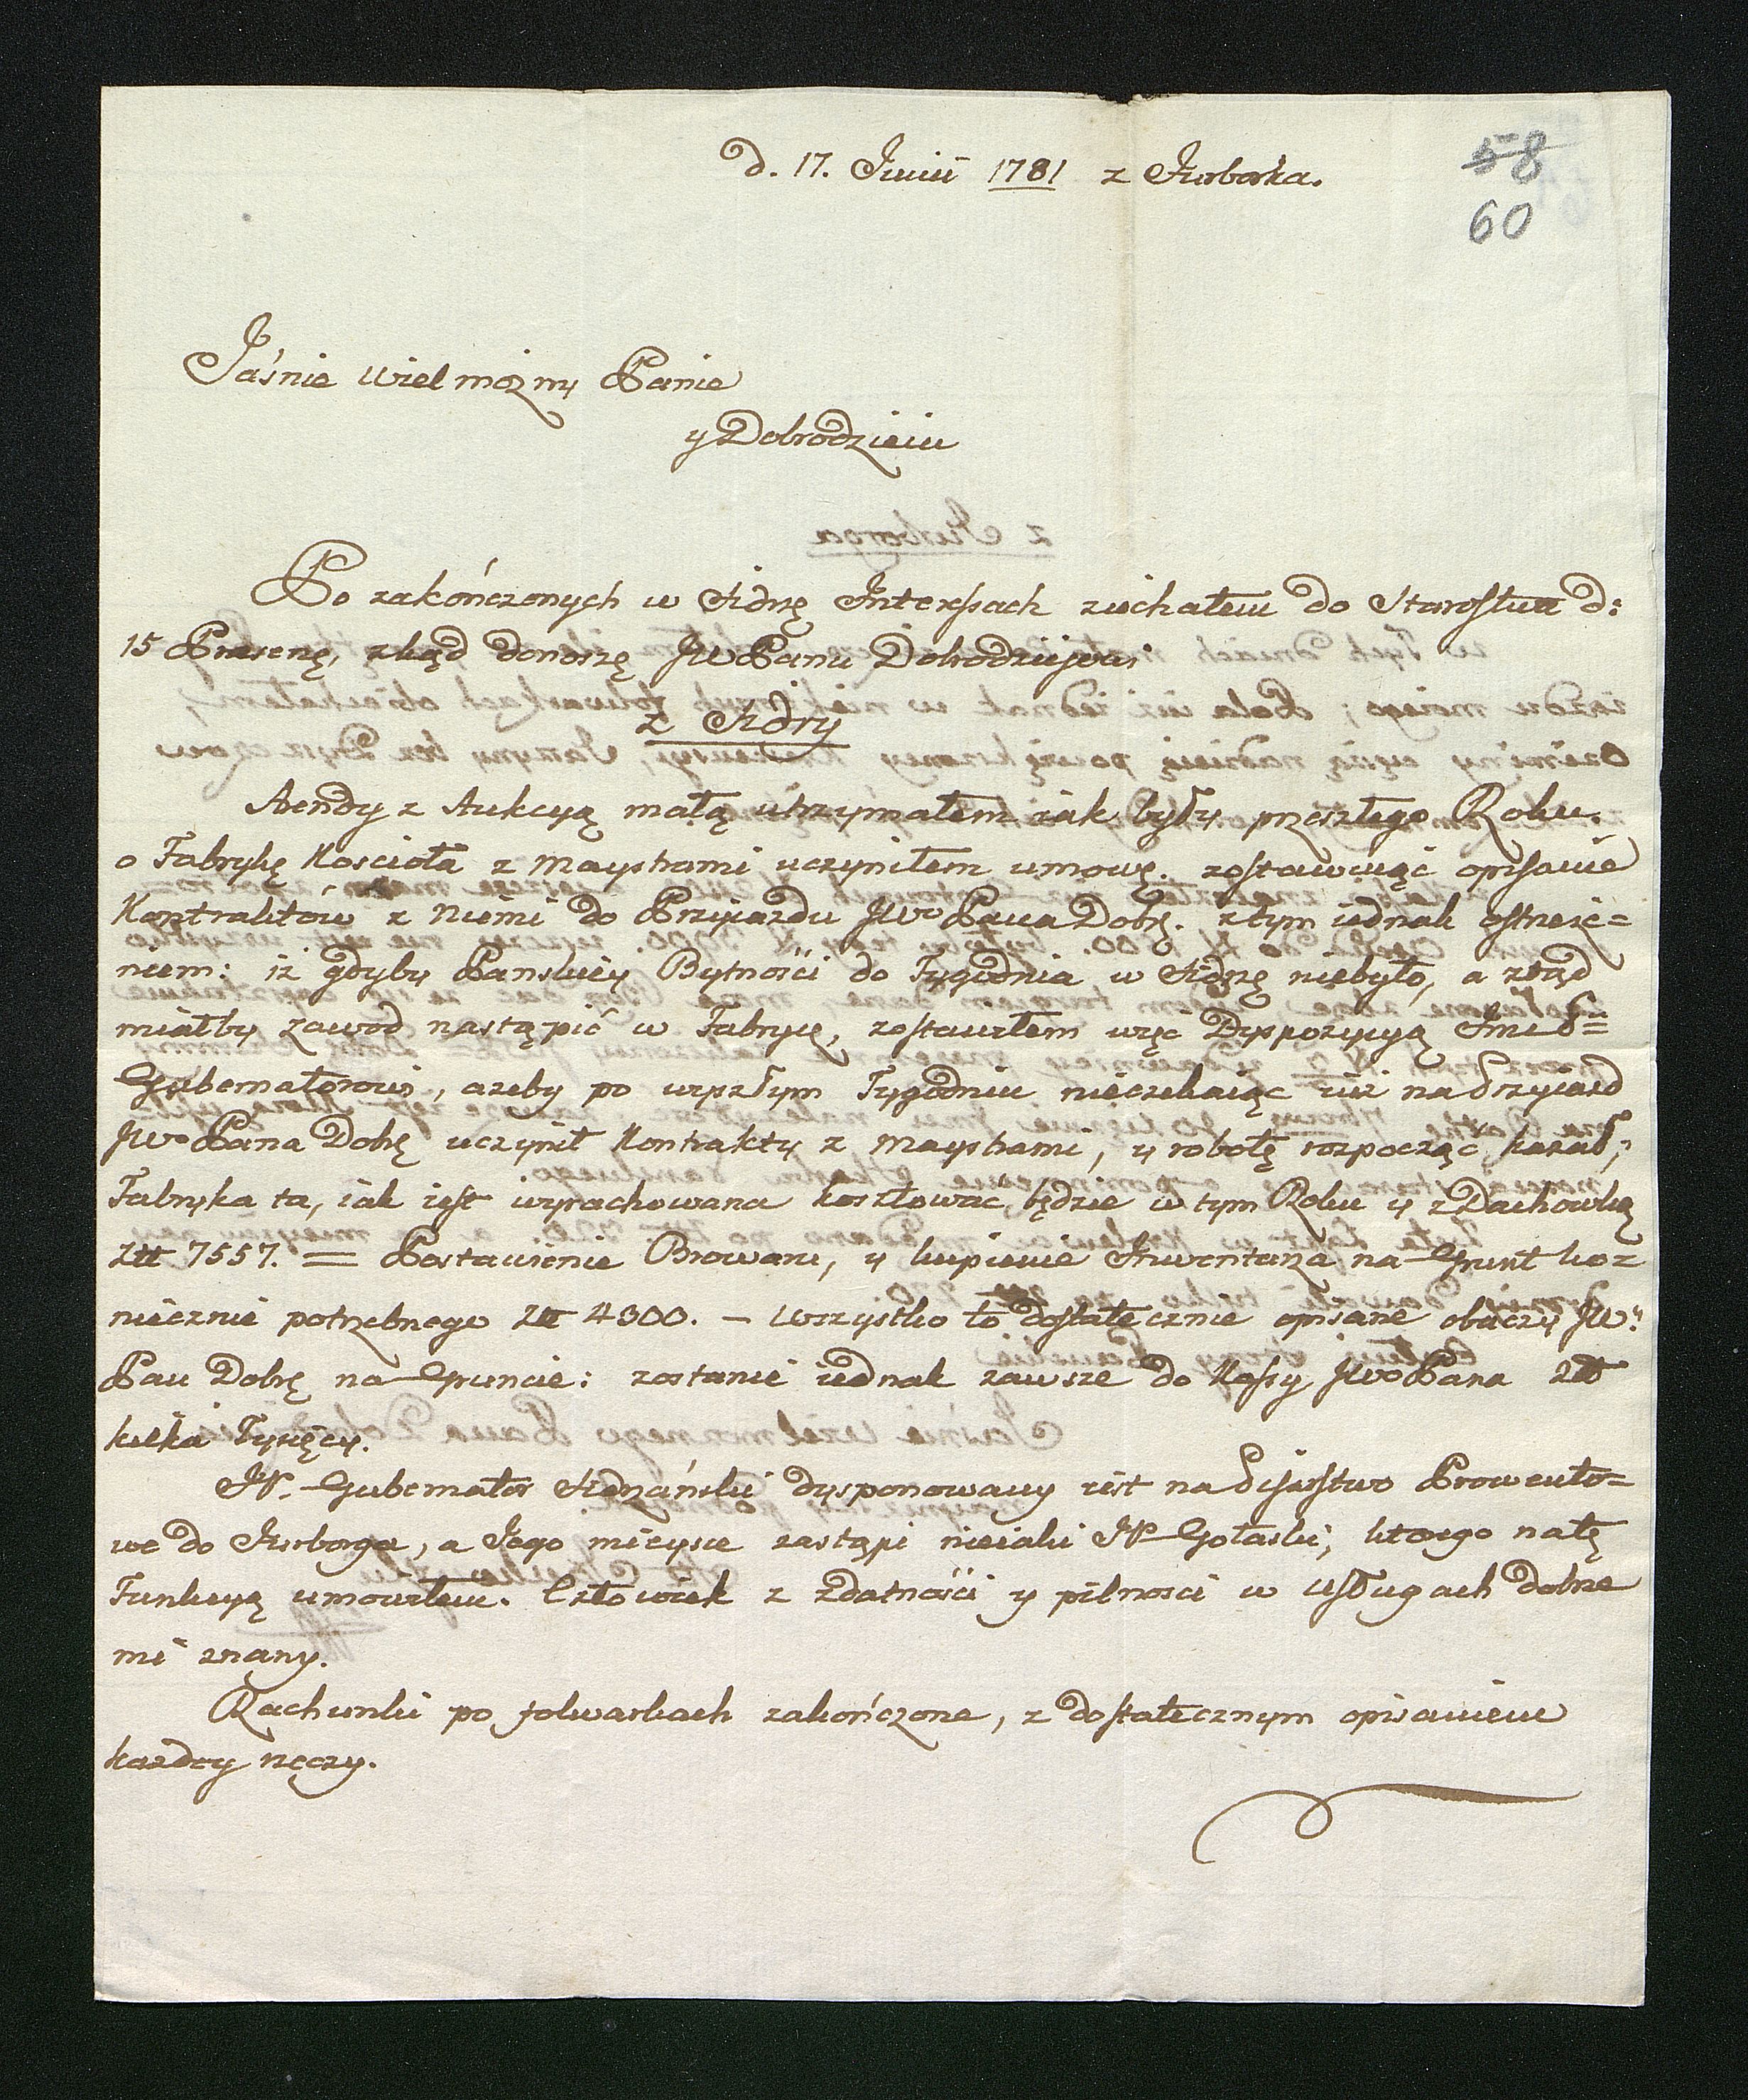 d. 17. Junii 1781 z Jurborka.
58
60
Jaśnie Wielmożny Panie
y Dobrodzieiu
Po zakończonych w Sidrze Interessach ziechałem do Starostwa d:
15 Praesenę, zkąd donoszę JW Panu Dobrodziejowi
z Sidry
Arendy z Aukcyą małą utrzymałem iak były przeszłego Roku.
o Fabrykę Koscioła z Maystrami uczyniłem umowę. zostawuiąc opisanie
Kontraktów z niemi do Przyiazdu JWo Pana Dobrę. z tym iednak ostrzeże=
niem: iż gdyby Panskiey Bytności do Tygodnia w Sidrze niebyło, a ztąd
miałby zawod nastąpić w Fabryce, zostawiłem więc Dyspozycyą
Gubernatorowi, ażeby po wyszłym Tygodniu nieczekaiąc iuż na Przyiazd
JWo Pana Dobrę uczynił Kontrakty z Maystrami, y robotę rozpocząć kazał;
Fabryka ta, iak iest wyrachowana kosztować będzie w tym Roku y z Dachowką
Złł 7557. = Postawienie Browaru, y kupienie Inwentarza na Grunt ko=
niecznie potrzebnego Złł 4300. – Wszystko to dostatecznie opisane obaczy JW:
Pan Dobrę na Gruncie: zostanie iednak zawsze do Kassy JWo Pana Złł
kilka Tysięcy.
JP. Gubernator Sidrzański dysponowany iest na Pisarstwo Prowento=
we do Jurborga, a Jego mieysce zastąpi nieiaki JP Gołaski, ktorego na tę
Funkcyą umowiłem. Człowiek z zdatności y pilnosci w Usługach dobrze
mi znany.
Rachunki po folwarkach zakończone, z dostatecznym opisaniem
każdey rzeczy.